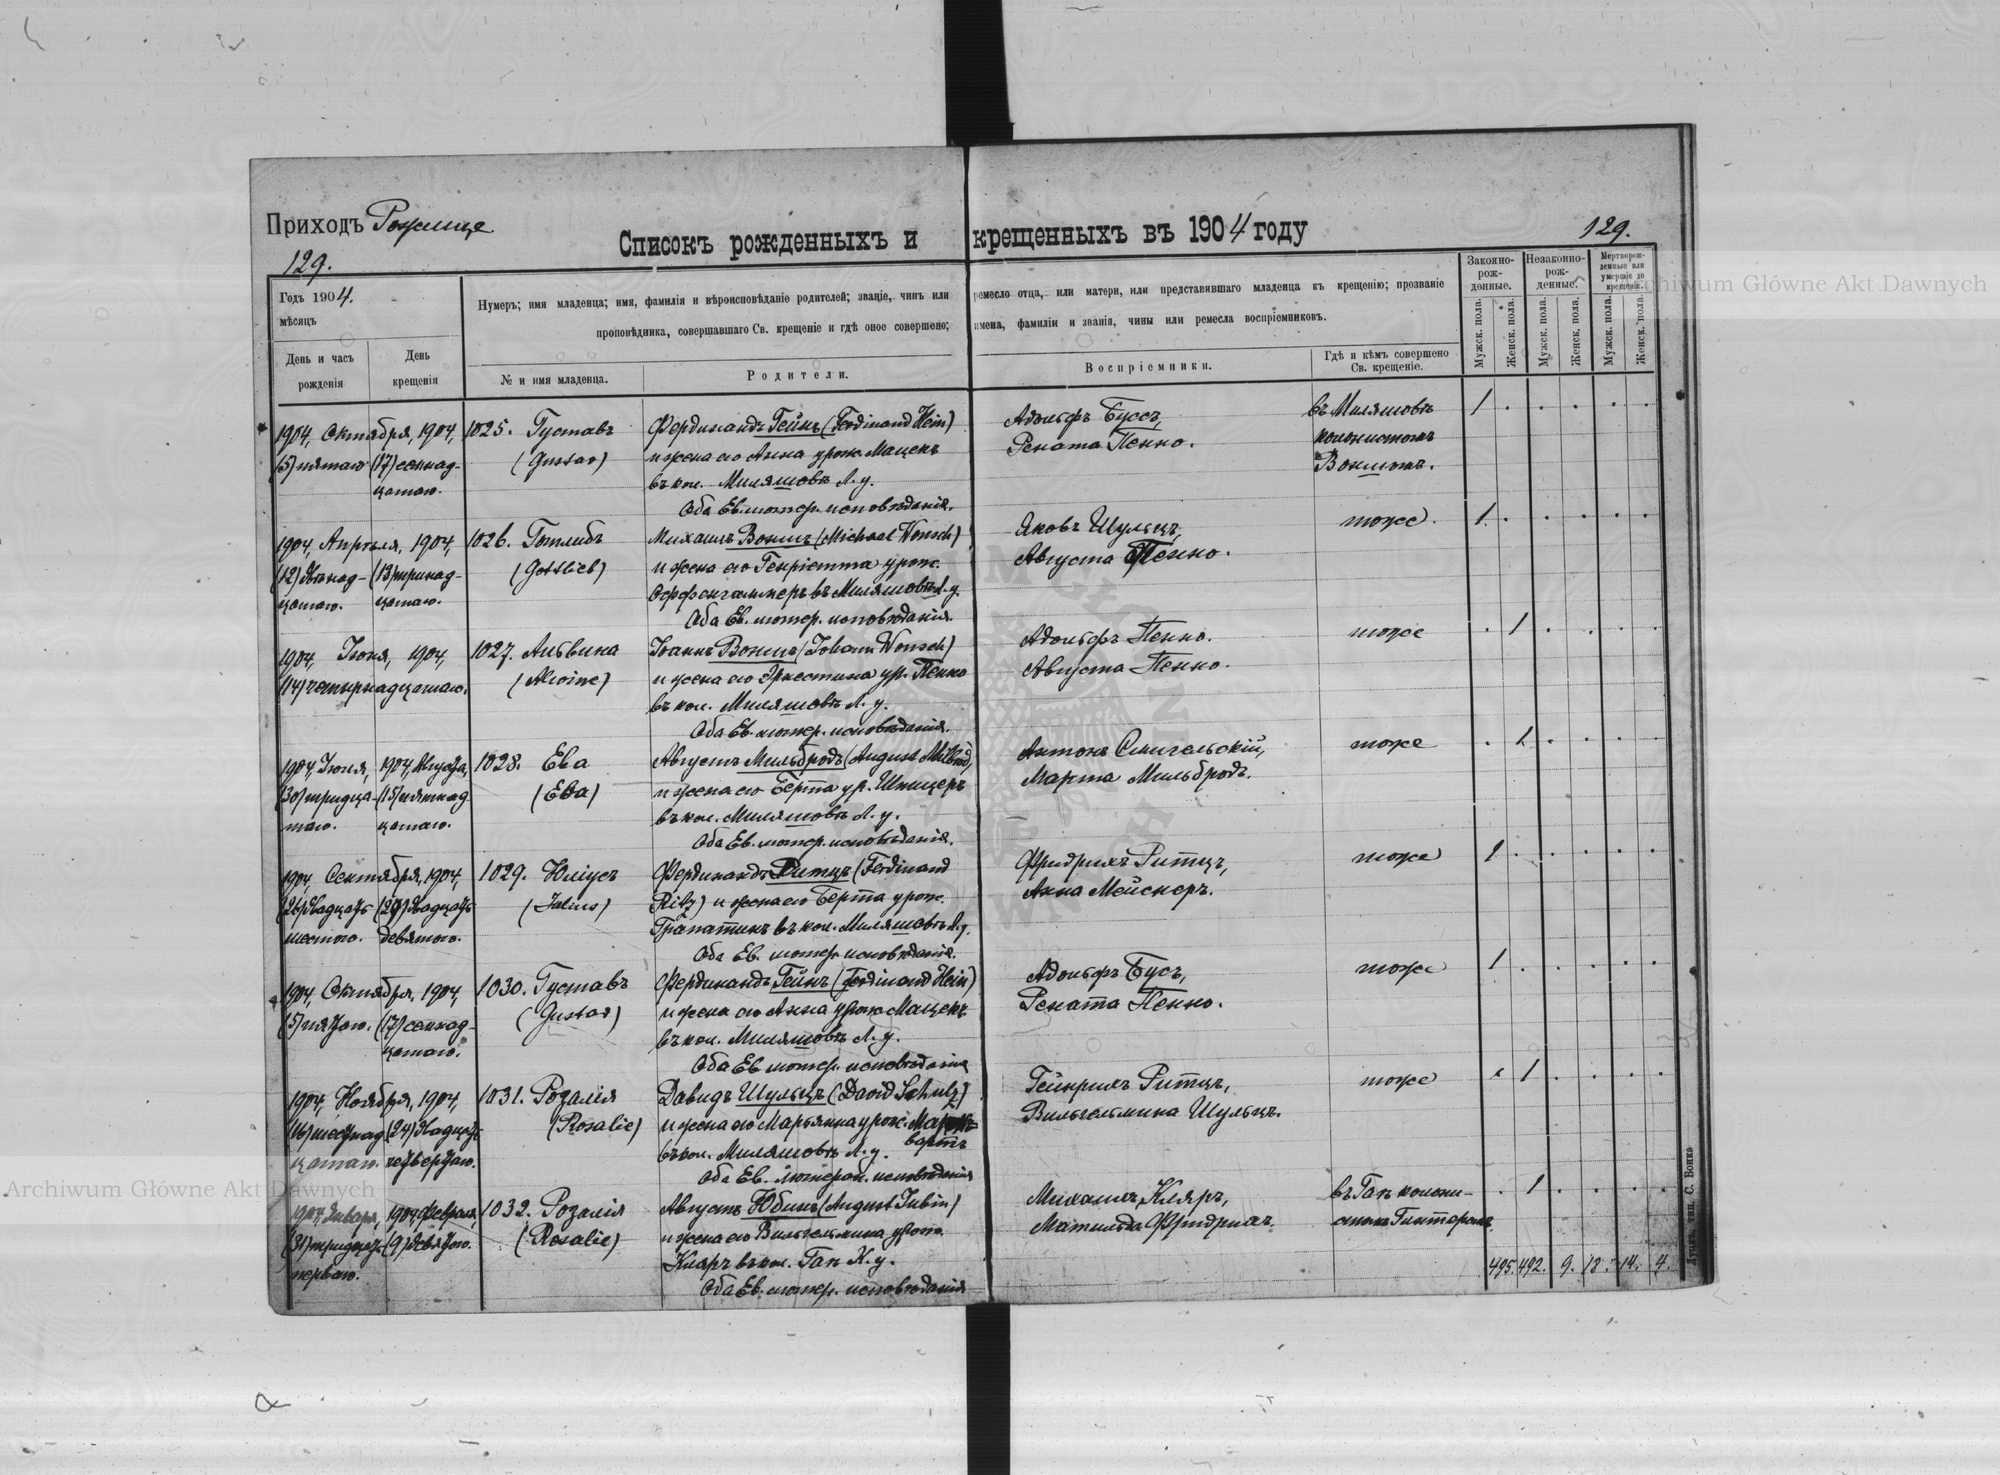 Приходъ Рожище
129.
Списокъ рожденныхъ и крещенныхъ въ 1904 году
129.
Годъ 1904.
мѣсяцъ
День и часъ рожденія
День крещенія
Нумеръ; имя младенца; имя, фамилія и вѣроисповѣданіе родителей; званіе, чинъ или ремесло отца, или матери, или представившаго младенца къ крещенію; прозваніе
проповѣдника, совершавшаго Св. крещеніе и гдѣ оное совершено; имена, фамиліи и званія, чины или ремесла воспріемниковъ.
№ и имя младенца.
Родители.
Воспріемники.
Гдѣ и кѣмъ совершено Св. крещеніе.
Законно-рож-денные.
Незаконно-рож-денные.
Мертворож-денные или умершіе до крещенія.
Мужск. пола.
Женск. пола.
Мужск. пола.
Женск. пола.
Мужск. пола.
Женск. пола.
1904, Октября, 1904, 1025. Густавъ Фердинандъ Гейнъ (Ferdinand Hein) Адольфъ Буссъ, въ Миляшовѣ 1
(5) пятаго (17) семнад- (Gustav) и жена его Анна урож. Мацекъ Рената Пенно. колонистомъ
цатаго. въ кол. Миляшовѣ Л. у. Воншомъ.
Оба Ев. лютер. исповѣданія.
1904, Апрѣля, 1904, 1026. Готлибъ Михаилъ Воншъ (Michael Wonsch) Яковъ Шульцъ, тоже. 1
(12) двѣнад- (13) тринад- (Gottlieb) и жена его Генріетта урож. Августа Пенно.
цатаго. цатаго. въ Миляшовѣ Л. у.
Оба Ев. лютер. исповѣданія.
1904, Іюня, 1904, 1027. Альвина Іоаннъ Воншъ (Johann Wonsch) Адольфъ Пенно. тоже 1
(14) четырнадцатаго. (Alwine) и жена его Эрнестина ур. Пенно Августа Пенно.
въ кол. Миляшовѣ Л. у.
Оба Ев. лютер. исповѣданія.
1904, Іюня, 1904, Августа, 1028. Ева Августъ Мильбродъ (August Milbrod) Антонъ Смигельскій, тоже 1
(30) тридца- (15) пятнад- (Eva) и жена его Берта ур. Шпицеръ Марта Мильбродъ.
таго. цатаго. въ кол. Миляшовѣ Л. у.
Оба Ев. лютер. исповѣданія.
1904, Сентября, 1904, 1029. Юліусъ Фердинандъ Ритцъ (Ferdinand Фридрихъ Ритцъ, тоже 1
(26) двадцать (29) двадцать (Julius) Ritz) и жена его Берта урож. Анна Мейснеръ.
шестого. девятого. въ кол. Миляшовѣ Л. у.
Оба Ев. лютер. исповѣданія.
1904, Октября, 1904, 1030. Густавъ Фердинандъ Гейнъ (Ferdinand Hein) Адольфъ Бусъ, тоже 1
(5) пятаго. (17) семнад- (Gustav) и жена его Анна урож. Мацекъ Рената Пенно.
цатаго. въ кол. Миляшовѣ Л. у.
Оба Ев. лютер. исповѣданія
1904, Ноября, 1904, 1031. Розалія Давидъ Шульцъ (David Schulz) Гейнрихъ Ритцъ, тоже 1
(16) шестнад (24) двадцать (Rosalie) и жена его Марьянна урож. Вильгельмина Шульцъ.
цатаго. четвертаго. въ кол. Миляшовѣ Л. у.
Оба Ев. лютеран. исповѣданія
1904, Января, 1904, Февраля, 1032. Розалія Августъ Юбинъ (August Jubin) Михаилъ Кляръ, въ Гап колони- 1
(31) тридцать (9) девятаго. (Rosalie) и жена его Вильгельмина урож. Матильда Фридрихъ.
перваго. Кляръ въ кол. Гап Л. у.
Оба Ев. лютер. исповѣданія
495. 492. 9. 18. 14. 4.
тип. С. Бонкъ
Archiwum Główne Akt Dawnych
Archiwum Główne Akt Dawnych